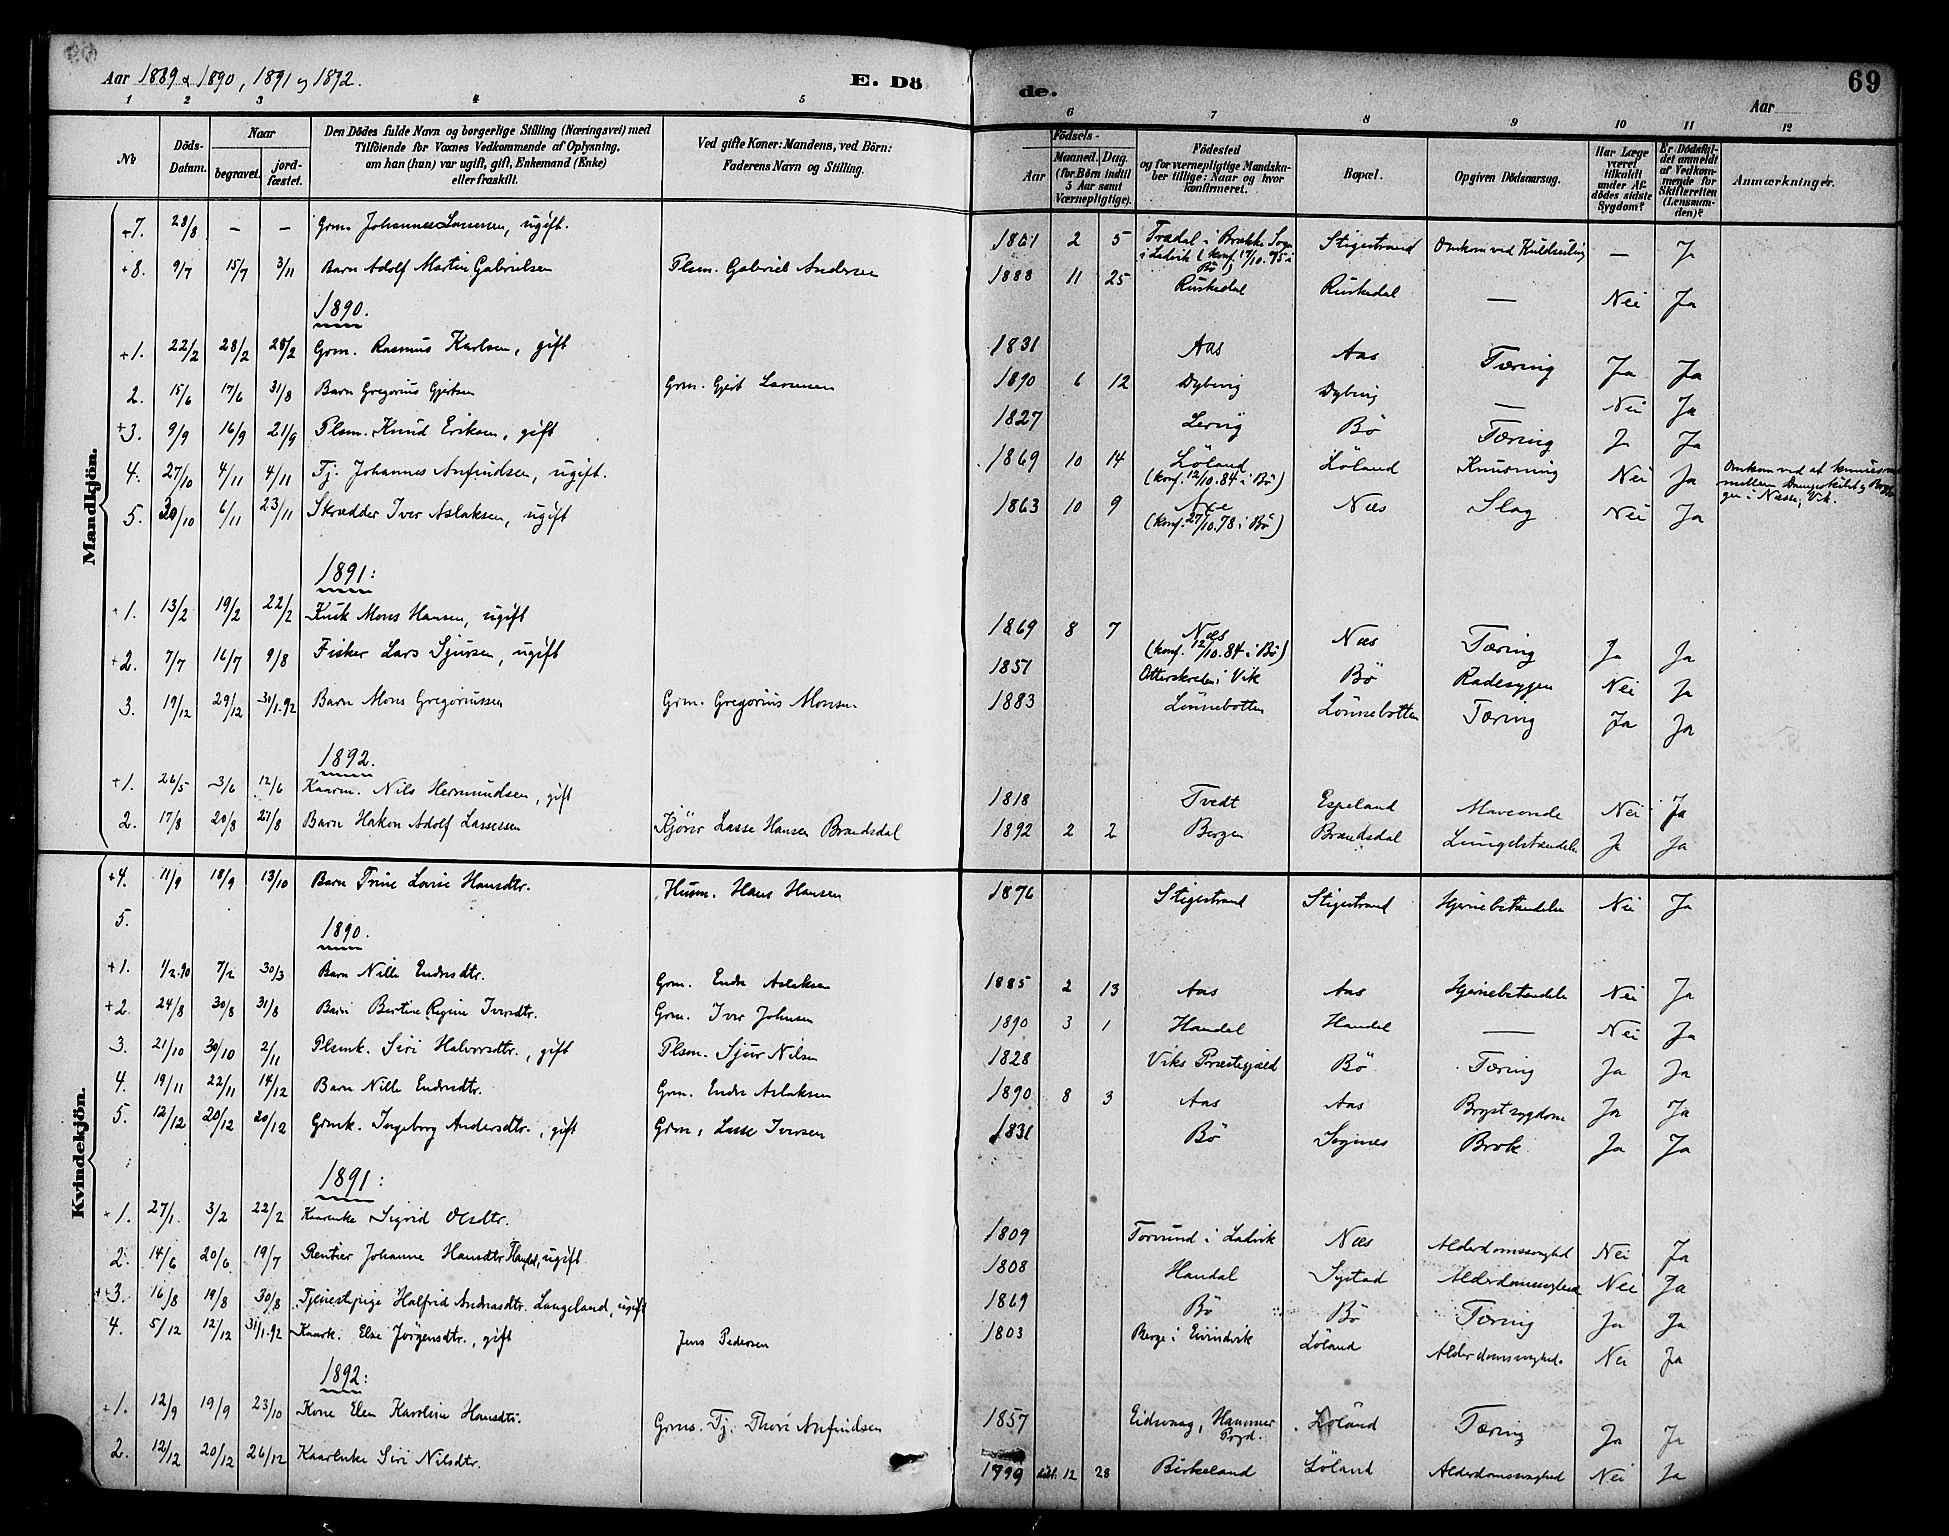 Aar 1889 & 1890, 1891 og 1892.
E. Dö
de.
69
Aar
1 2 3 4 5
6 7 8 9 10 11 12
No
Döds-Datum.
Naar
begravet.
jord-fæstet.
Den Dödes fulde Navn og borgerlige Stilling (Næringsvei) med
Tilföiende for Voxnes Vedkommende af Oplysning,
om han (hun) var ugift, gift, Enkemand (Enke)
eller fraskilt.
Ved gifte Koner: Mandens, ved Börn:
Faderens Navn og Stilling.
Födsels-
Aar
Maaned. Dag.
(for Börn indtil
5 Aar samt
Værnepligtige).
Födested
og for værnepligtige Mandska-
ber tillige: Naar og hvor
konfirmeret.
Bopæl.
Opgiven Dödsaarsag.
Har Læge
været
tilkaldt
under Af-
dödes sidste
Sygdom?
Er Dödsfal-
det anmeldt
af Vedkom-
mende for
Skifteretten
(Lensman-
den)?
Anmærkninger.
Mandkjön.
+7. 28/8 – – Grm. Johannes Lassesen, ugift. 1861 2 5 Tradal i Brække Sogn i Ladvik (konf. 17/10.75 i Bö) Stigestrand Omkom ved Kuldseiling — J
+8. 9/7 15/7 3/11 Barn Adolf Martin Gabrielsen Plsm. Gabriel Andersen 1888 11 25 Ruskedal Ruskedal — Nei Ja
1890.
+1. 22/2 28/2 28/2 Grm. Rasmus Karlsen, gift 1831 Aas Aas Tæring Ja Ja
2. 15/6 17/6 31/8 Barn Gregorius Gjertsen Grm. Gjert Larssen 1890 6 12 Dybvig Dybvig — Nei Ja
+3. 9/9 16/9 21/9 Plsm. Knud Eriksen, gift 1827 Lervig Bö Tæring J Ja
4. 27/10 4/11 4/11 Tj. Johannes Anfindsen, ugift. 1869 10 14 Löland (konf. 12/10.84 i Bö) Löland Knusning Nei Ja Omkom ved at knuses mellem Dampskibet og Bryggen i Næsse, Vik.
5. 30/10 6/11 23/11 Skrædder Iver Aslaksen, ugift 1863 10 9 Axe (konf. 27/10.78 i Bö) Næs Slag Nei Ja
1891:
+1. 13/2 19/2 22/2 Kusk Mons Hansen, ugift 1869 8 7 Næs (konf. 12/10.84 i Bö) Næs Tæring Ja Ja
+2. 7/7 16/7 9/8 Fisker Lars Sjursen, ugift 1851 Otterskreden i Vik Bö Radesygen Nei Ja
3. 19/12 29/12 31/1.92 Barn Mons Gregoriussen Grm. Gregorius Monsen 1883 Lönnebotten Lönnebotten Tæring Ja Ja
1892.
+1. 26/5 3/6 12/6 Kaarm. Nils Hermundsen, gift 1818 Tvedt Espeland Maveonde Nei Ja
2. 17/8 20/8 27/8 Barn Hakon Adolf Lassessen Kjörer Lasse Hansen Brandsdal 1892 2 2 Bergen Brandsdal Lungebetændelse J Ja
Kvindekjön.
+4. 11/9 18/9 13/10 Barn Trine Lovise Hansdtr. Husm. Hans Hansen 1876 Stigestrand Stigestrand Hjernebetændelse Nei Ja
5.
1890.
+1. 1/2.90 7/2 30/3 Barn Nille Endresdtr. Grm. Endre Aslaksen 1885 2 13 Aas Aas Hjernebetændelse Nei Ja
+2. 24/8 30/8 31/8 Barn Bertine Regine Iversdtr. Grm. Iver Johnsen 1890 3 1 Handal Handal — Nei Ja
3. 21/10 30/10 2/11 Plsmk. Siri Halvorsdtr., gift Plsm. Sjur Nilsen 1828 Viks Præstegjæld Bö Tæring Ja Ja
4. 19/11 22/11 14/12 Barn Nille Endresdtr. Grm. Endre Aslaksen 1890 8 3 Aas Aas Brystsygdom Ja Ja
5. 12/12 20/12 20/12 Grmk. Ingeborg Andersdtr., gift Grm. Lasse Iversen 1831 Bö Sognes Brok Ja Ja
1891:
+1. 27/1. 3/2 22/2 Kaarenke Sigrid Olsdtr. 1809 Torvund i Ladvik Næs Alderdomssvaghed Nei Ja
2. 14/6 20/6 19/7 Rentier Johanne Hansdtr Handal, ugift 1808 Handal Systad Alderdomssvaghed Nei Ja
+3. 16/8 19/8 30/8 Tjenestepige Halfrid Andreasdtr. Langeland, ugift 1869 Bö Bö Tæring Ja Ja
4. 5/12 12/12 31/1.92 Kaark. Else Jörgensdtr., gift Jens Pedersen 1803 Berge i Eivindvik Löland Alderdomssvaghed. Nei Ja
1892:
+1. 12/9 19/9 23/10 Kone Elen Karoline Hansdtr. Grms. Tj. Thore Anfindsen 1857 Eidsvaag, Hammer Prgd. Löland Tæring Ja Ja
2. 12/12 20/12 26/12 Kaarenke Siri Nilsdtr. 1799 12 28 Birkeland Löland Alderdomssvaghed Nei Ja